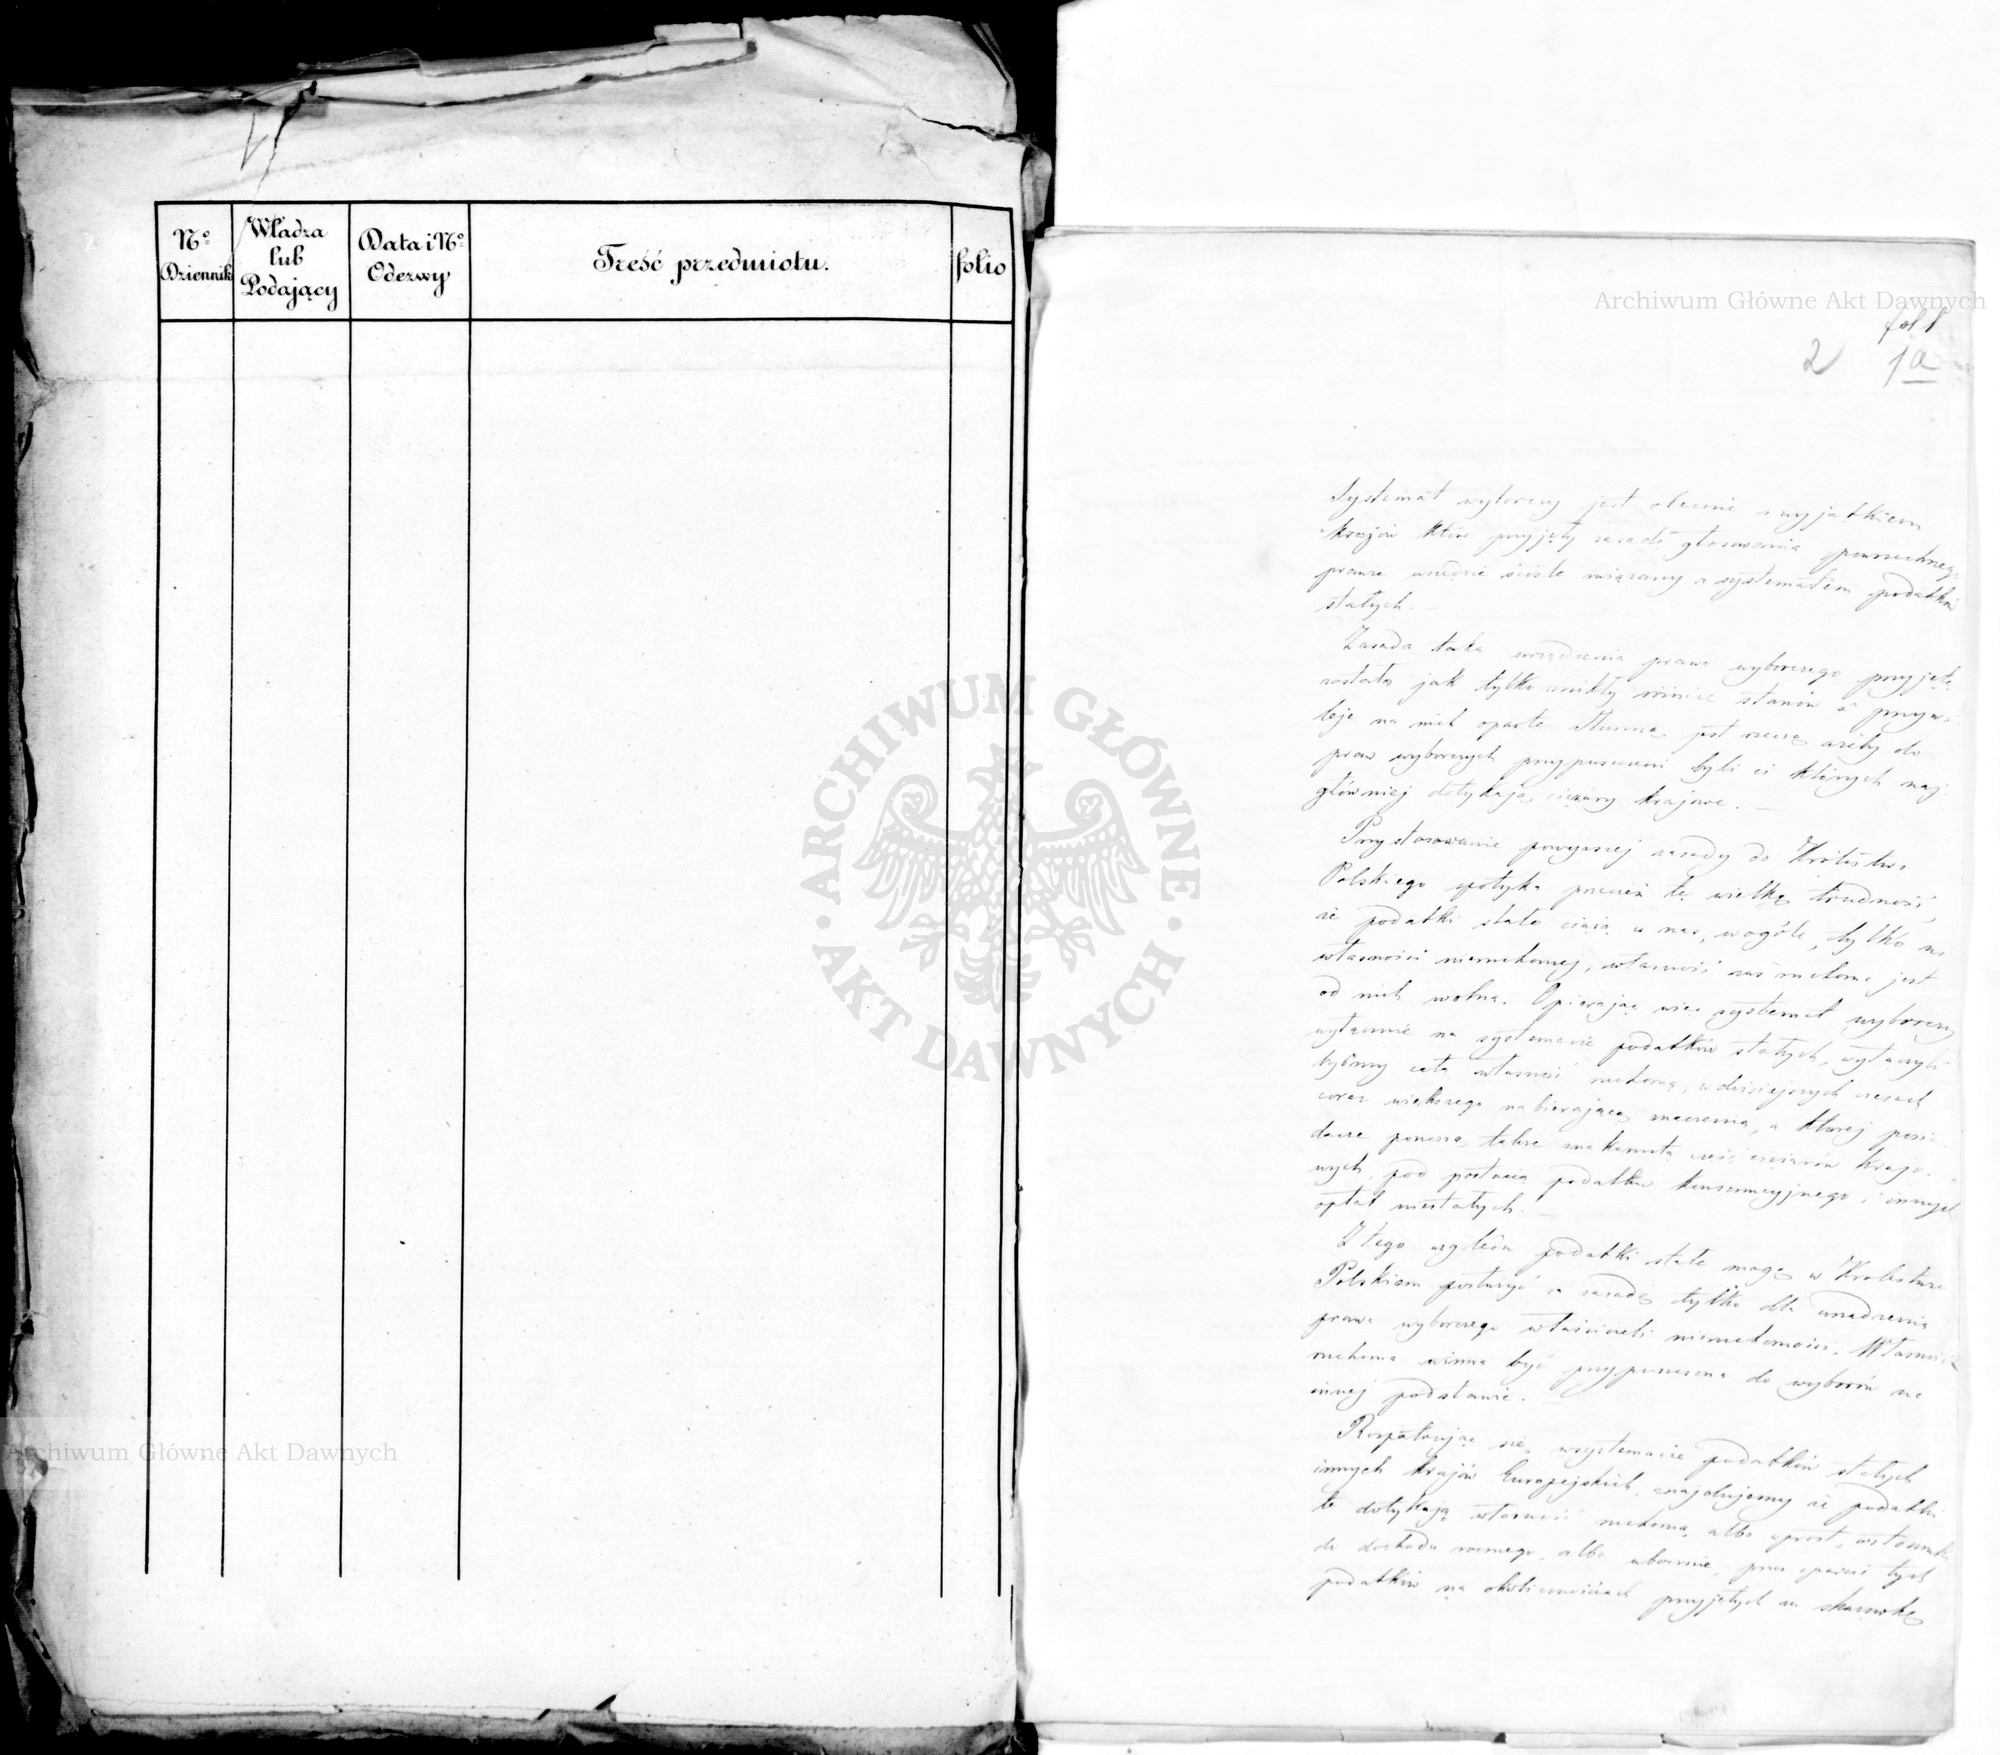 No Dziennik
Władza lub Podający
Data i No Odezwy
Treść przedmiotu.
folio
Archiwum Główne Akt Dawnych
fol 1
2 1a
Systemat wyborczy jest obecnie z wyjątkiem
krajów które przyjęły zasadę głosowania powszechnego
prawie wszędzie ściśle związany z systematem podatków
stałych. —
Zasada taka urządzenia prawa wyborczego przyjętą
została jak tylko znikły różnice stanów i przywi-
leje na nich oparte. Słuszną jest rzeczą ażeby do
praw wyborczych przypuszczeni byli ci których naj-
główniej dotykają ciężary krajowe. —
Przystosowanie powyższej zasady do Królestwa
Polskiego spotyka przecież tę wielką trudność,
że podatki stałe ciążą u nas, wogóle, tylko na
własności nieruchomej, własność zaś ruchoma jest
od nich wolna. Opierając więc systemat wyborczy
wyłącznie na systemacie podatków stałych, wyłączyli
byśmy całą własność ruchomą, w dzisiejszych czasach
coraz większego nabierającą znaczenia, a której posia
dacze ponoszą także znakomitą część ciężarów krajo-
wych, pod postacią podatku konsumcyjnego i innych
opłat niestałych. —
Z tego względu podatki stałe mogą w Królestwie
Polskiem posłużyć za zasadę tylko dla urządzenia
prawa wyborczego właścicieli nieruchomości. Własność
ruchoma winna być przypuszczona do wyborów na
innej podstawie. —
Rozpatrując się w systemacie podatków stałych
innych krajów Europejskich, znajdujemy że podatki
te dotykają własność ruchomą albo wprost, w stosunku
do dochodu rocznego, albo ubocznie, przez oparcie tych
podatków na okolicznościach przyjętych za skazówkę
ARCHIWUM GŁÓWNE AKT DAWNYCH
Archiwum Główne Akt Dawnych